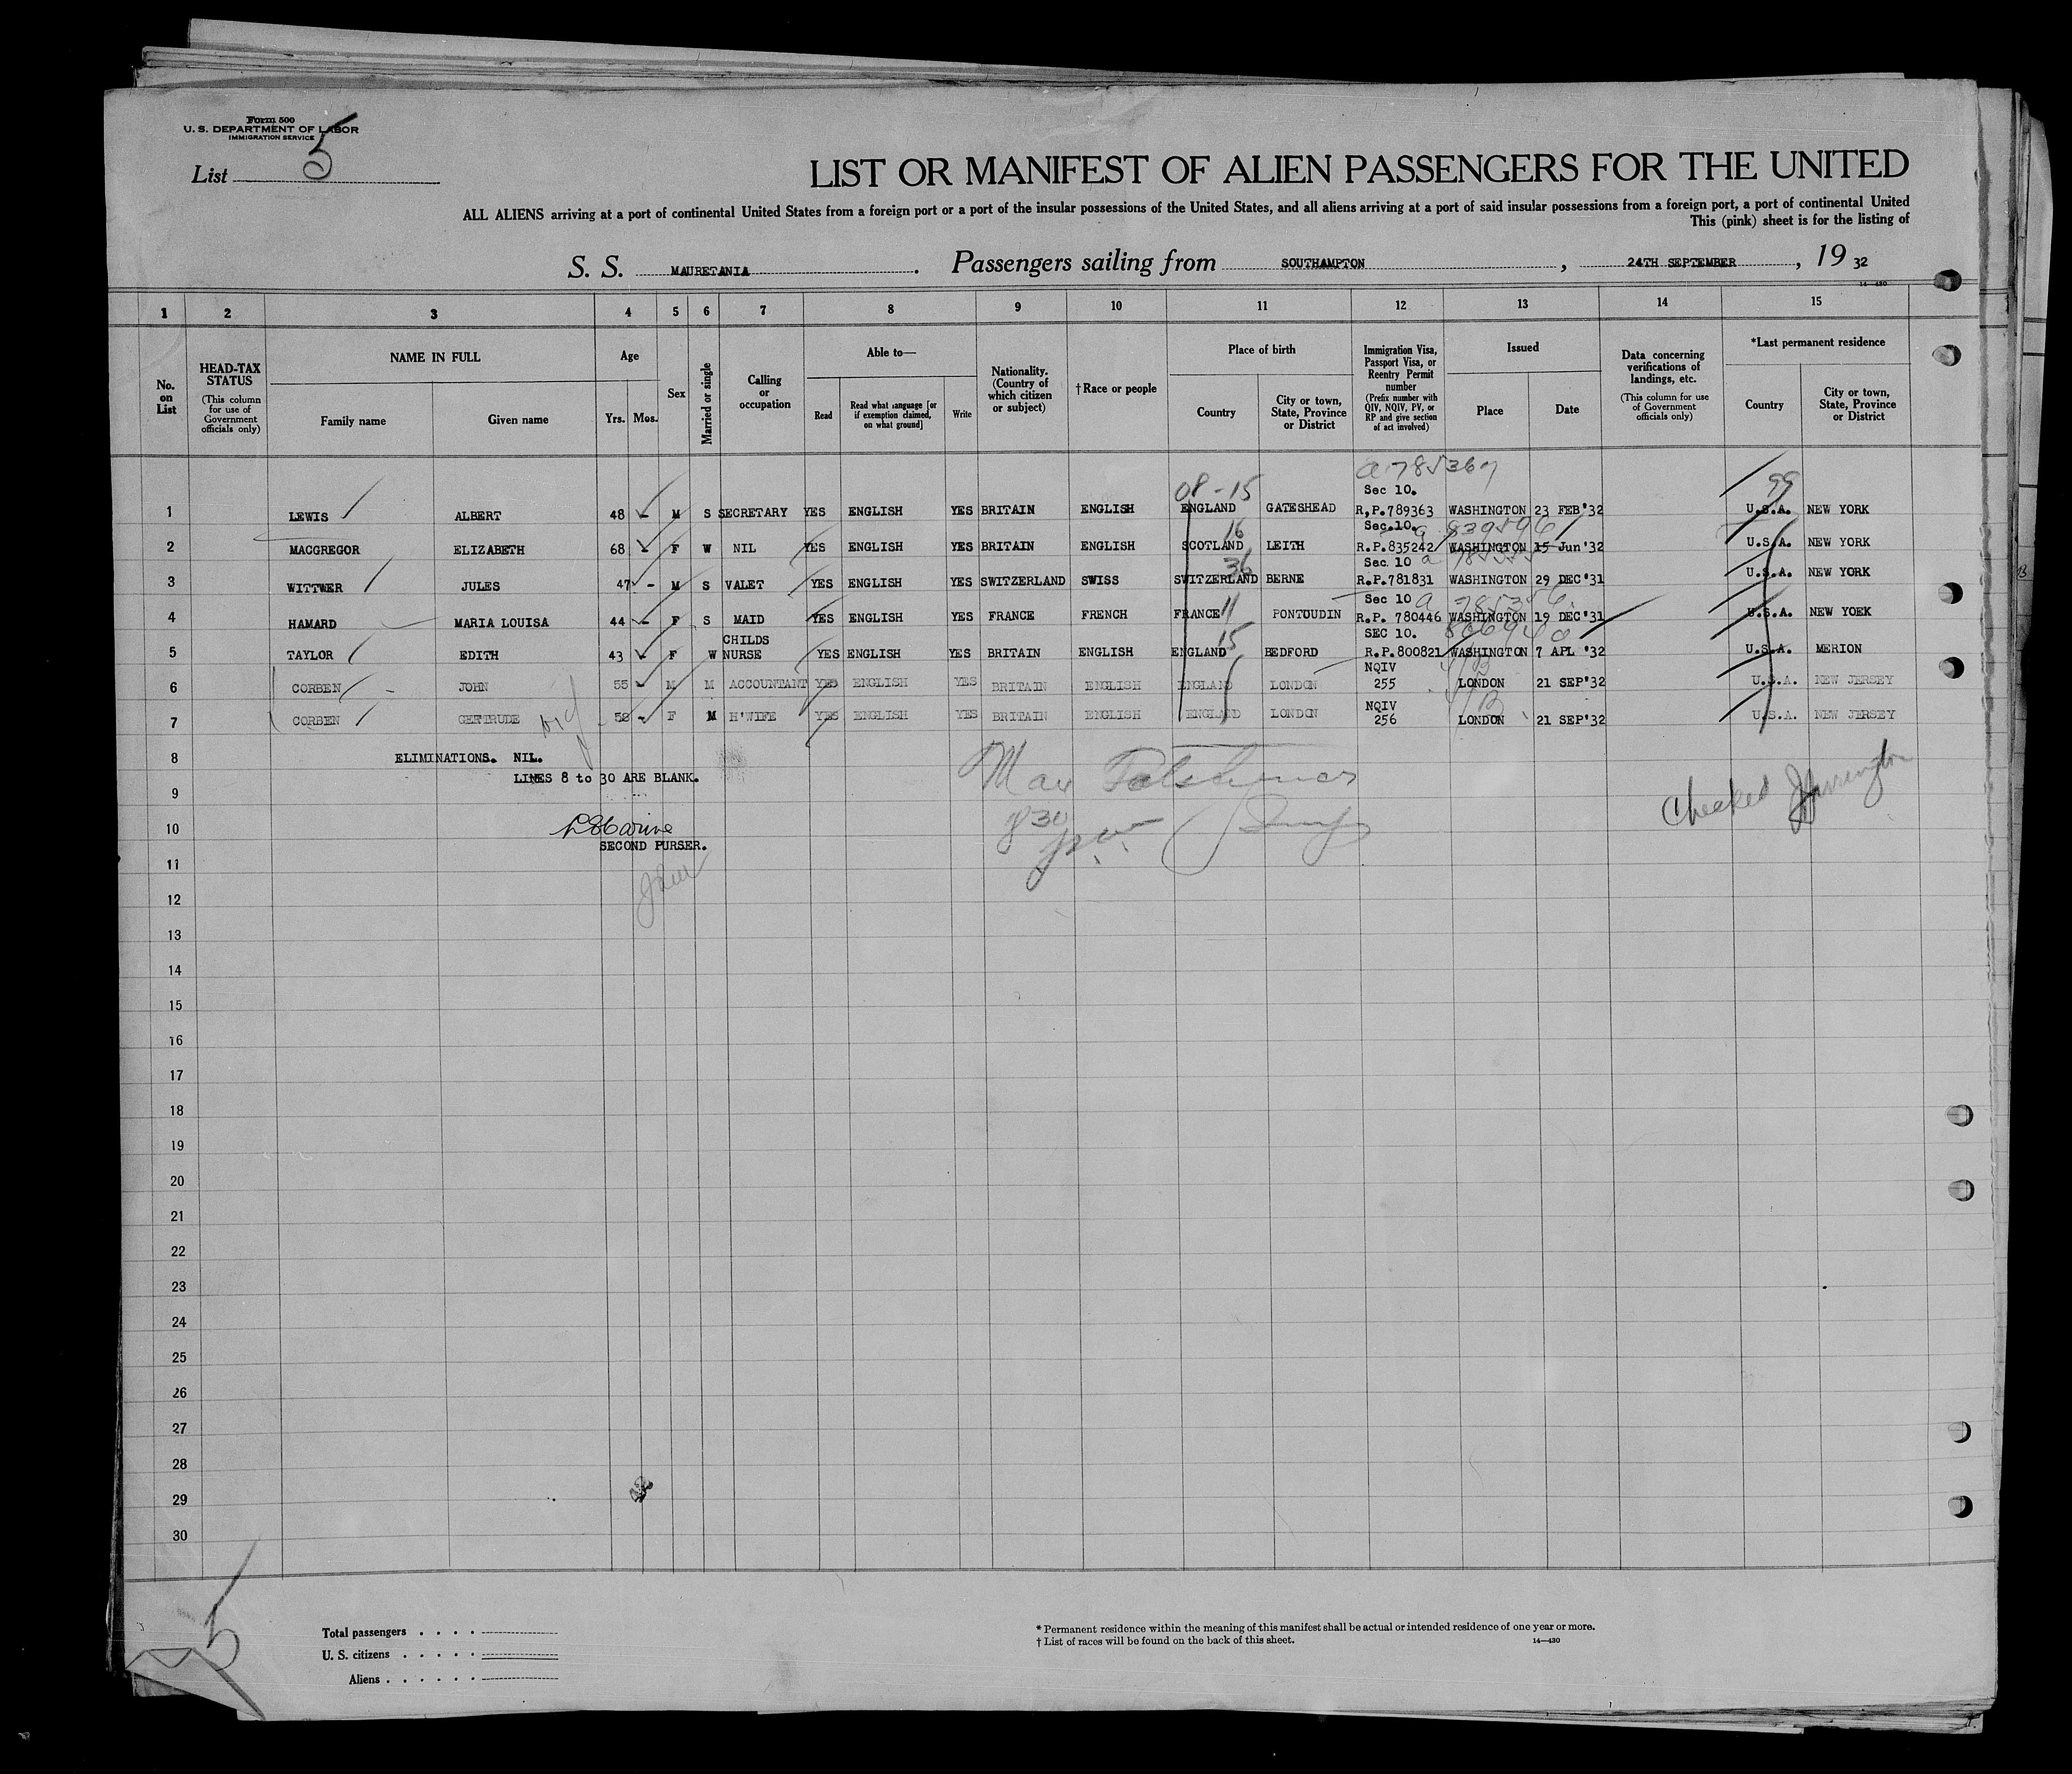 Form 500
U. S. DEPARTMENT OF LABOR
IMMIGRATION SERVICE
List 5
LIST OR MANIFEST OF ALIEN PASSENGERS FOR THE UNITED
ALL ALIENS arriving at a port of continental United States from a foreign port or a port of the insular possessions of the United States, and all aliens arriving at a port of said insular possessions from a foreign port, a port of continental United
This (pink) sheet is for the listing of
S. S. MAURETANIA. Passengers sailing from SOUTHAMPTON, 24TH SEPTEMBER, 19 32
14—430
1 2 3 4 5 6 7 8 9 10 11 12 13 14 15
No. on List
HEAD-TAX STATUS (This column for use of Government officials only)
NAME IN FULL
Family name Given name
Age
Yrs. Mos.
Sex
Married or single
Calling or occupation
Able to—
Read
Read what language [or if exemption claimed, on what ground]
Write
Nationality. (Country of which citizen or subject)
†Race or people
Place of birth
Country
City or town, State, Province or District
Immigration Visa, Passport Visa, or Reentry Permit number (Prefix number with QIV, NQIV, PV, or RP and give section of act involved)
Issued
Place Date
Data concerning verifications of landings, etc. (This column for use of Government officials only)
*Last permanent residence
Country
City or town, State, Province or District
a 785367
08-15 Sec 10. 99
1 LEWIS ALBERT 48 - M S SECRETARY YES ENGLISH YES BRITAIN ENGLISH ENGLAND GATESHEAD R,P.789363 WASHINGTON 23 FEB'32 U.S.A. NEW YORK
16 Sec.10. a 839596
2 MACGREGOR ELIZABETH 68 - F W NIL YES ENGLISH YES BRITAIN ENGLISH SCOTLAND LEITH R.P.835242 WASHINGTON 15 Jun'32 U.S.A. NEW YORK
36 Sec 10 a
3 WITTWER JULES 47 - M S VALET YES ENGLISH YES SWITZERLAND SWISS SWITZERLAND BERNE R.P.781831 WASHINGTON 29 DEC'31 U.S.A. NEW YORK
Sec 10 a 785356
4 HAMARD MARIA LOUISA 44 - F S MAID YES ENGLISH YES FRANCE FRENCH FRANCE 11 PONTOUDIN R.P. 780446 WASHINGTON 19 DEC'31 U.S.A. NEW YOEK
CHILDS 15 SEC 10.
5 TAYLOR EDITH 43 - F W NURSE YES ENGLISH YES BRITAIN ENGLISH ENGLAND BEDFORD R.P.800821 WASHINGTON 7 APL '32 U.S.A. MERION
NQIV
6 CORBEN JOHN 55 - M M ACCOUNTANT YES ENGLISH YES BRITAIN ENGLISH ENGLAND LONDON 255 LONDON 21 SEP'32 U.S.A. NEW JERSEY
NQIV
7 CORBEN GERTRUDE 58 - F M H'WIFE YES ENGLISH YES BRITAIN ENGLISH ENGLAND LONDON 256 LONDON 21 SEP'32 U.S.A. NEW JERSEY
8 ELIMINATIONS. NIL.
LINES 8 to 30 ARE BLANK.
9
Max
Checked
10
830
SECOND PURSER.
11
12
13
14
15
16
17
18
19
20
21
22
23
24
25
26
27
28
29
30
5
Total passengers . . . .
U. S. citizens . . . . .
Aliens . . . . . .
* Permanent residence within the meaning of this manifest shall be actual or intended residence of one year or more.
† List of races will be found on the back of this sheet. 14—430